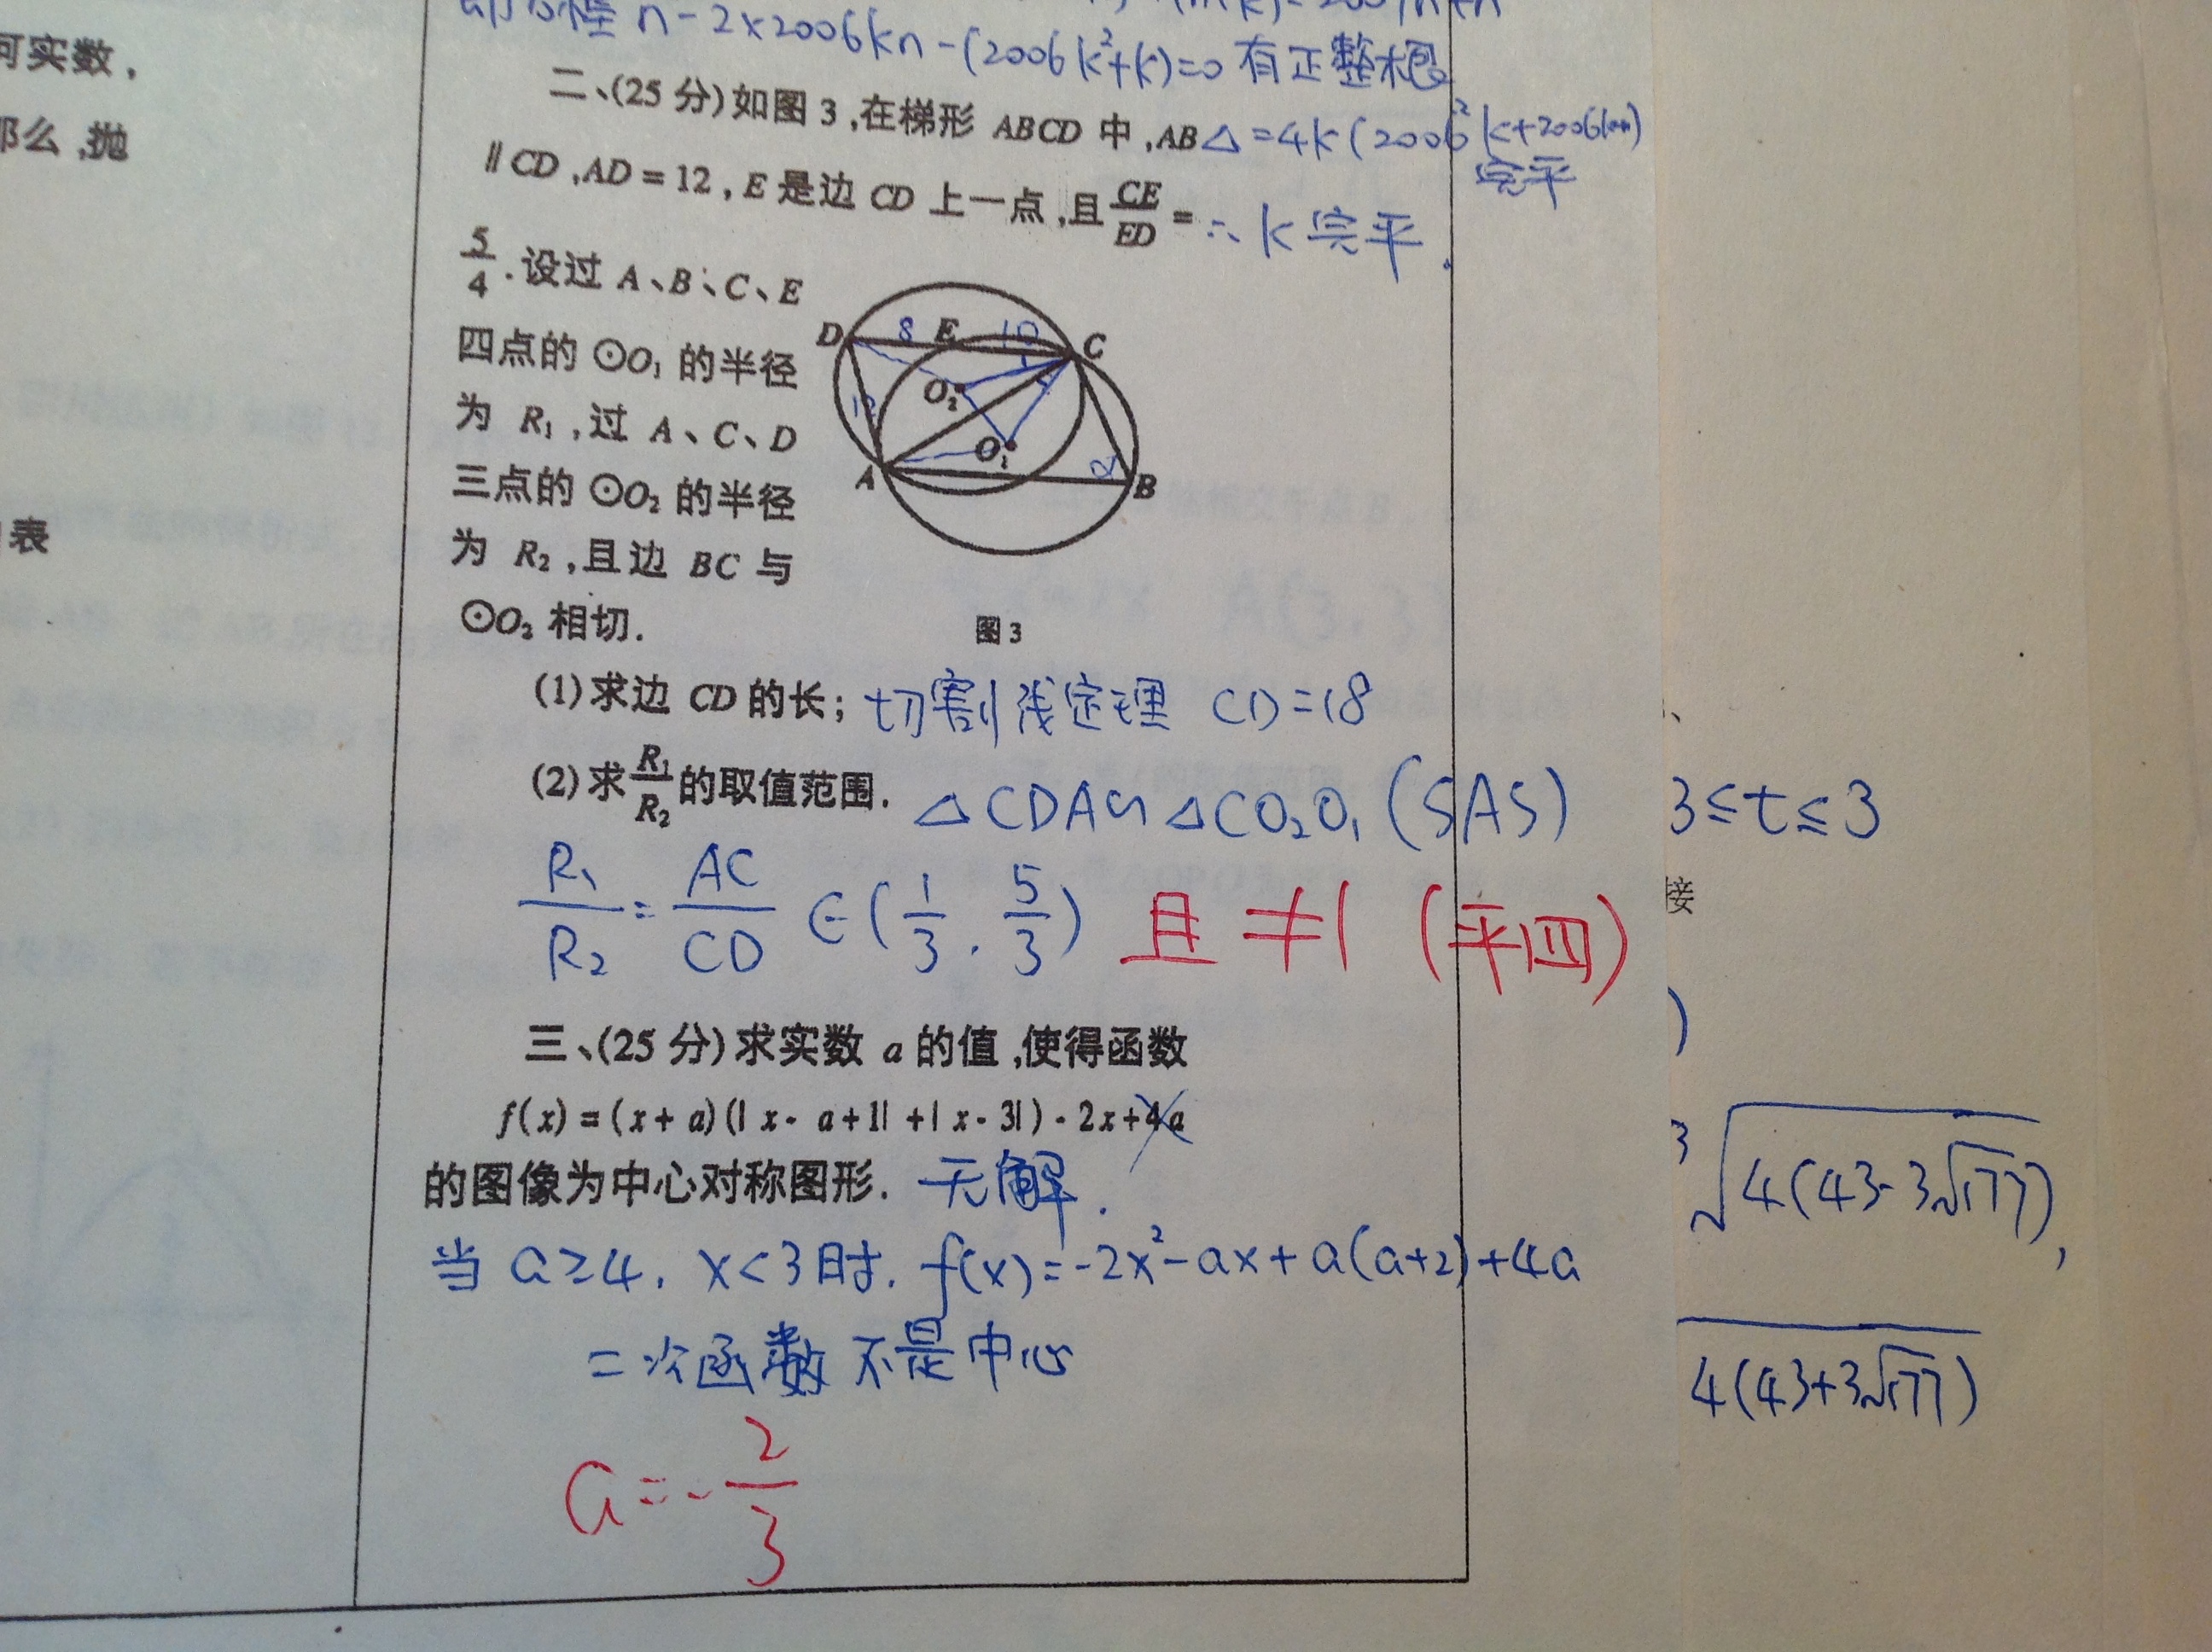 何实数，
那么，抛
表
n - 2×2006kn - (2006k²+k)=0 有正整根
二、(25 分)如图 3，在梯形 ABCD 中，AB
△ = 4k(2006²k+2006
完平
∥CD，AD = 12，E 是边 CD 上一点，且 CE/ED =
∴ k 完平．
5/4．设过 A、B、C、E
四点的 ⊙O₁ 的半径
为 R₁，过 A、C、D
三点的 ⊙O₂ 的半径
为 R₂，且边 BC 与
⊙O₂ 相切．
D 8 E 10 C
O₂
12
O₁
A α B
图 3
(1)求边 CD 的长；切割线定理 CD=18
(2)求 R₁/R₂ 的取值范围． △CDA∽△CO₂O₁ (SAS)
R₁/R₂ = AC/CD ∈ (1/3, 5/3) 且 ≠1 (平四)
三、(25 分)求实数 a 的值，使得函数
f(x) = (x + a)(|x - a + 1| + |x - 3|) - 2x + 4a
的图像为中心对称图形．无解．
当 a≥4，x<3时，f(x)=-2x²-ax+a(a+2)+4a
二次函数 不是中心
a = -2/3
3≤t≤3
接
)
³√4(43-3√177),
4(43+3√177)